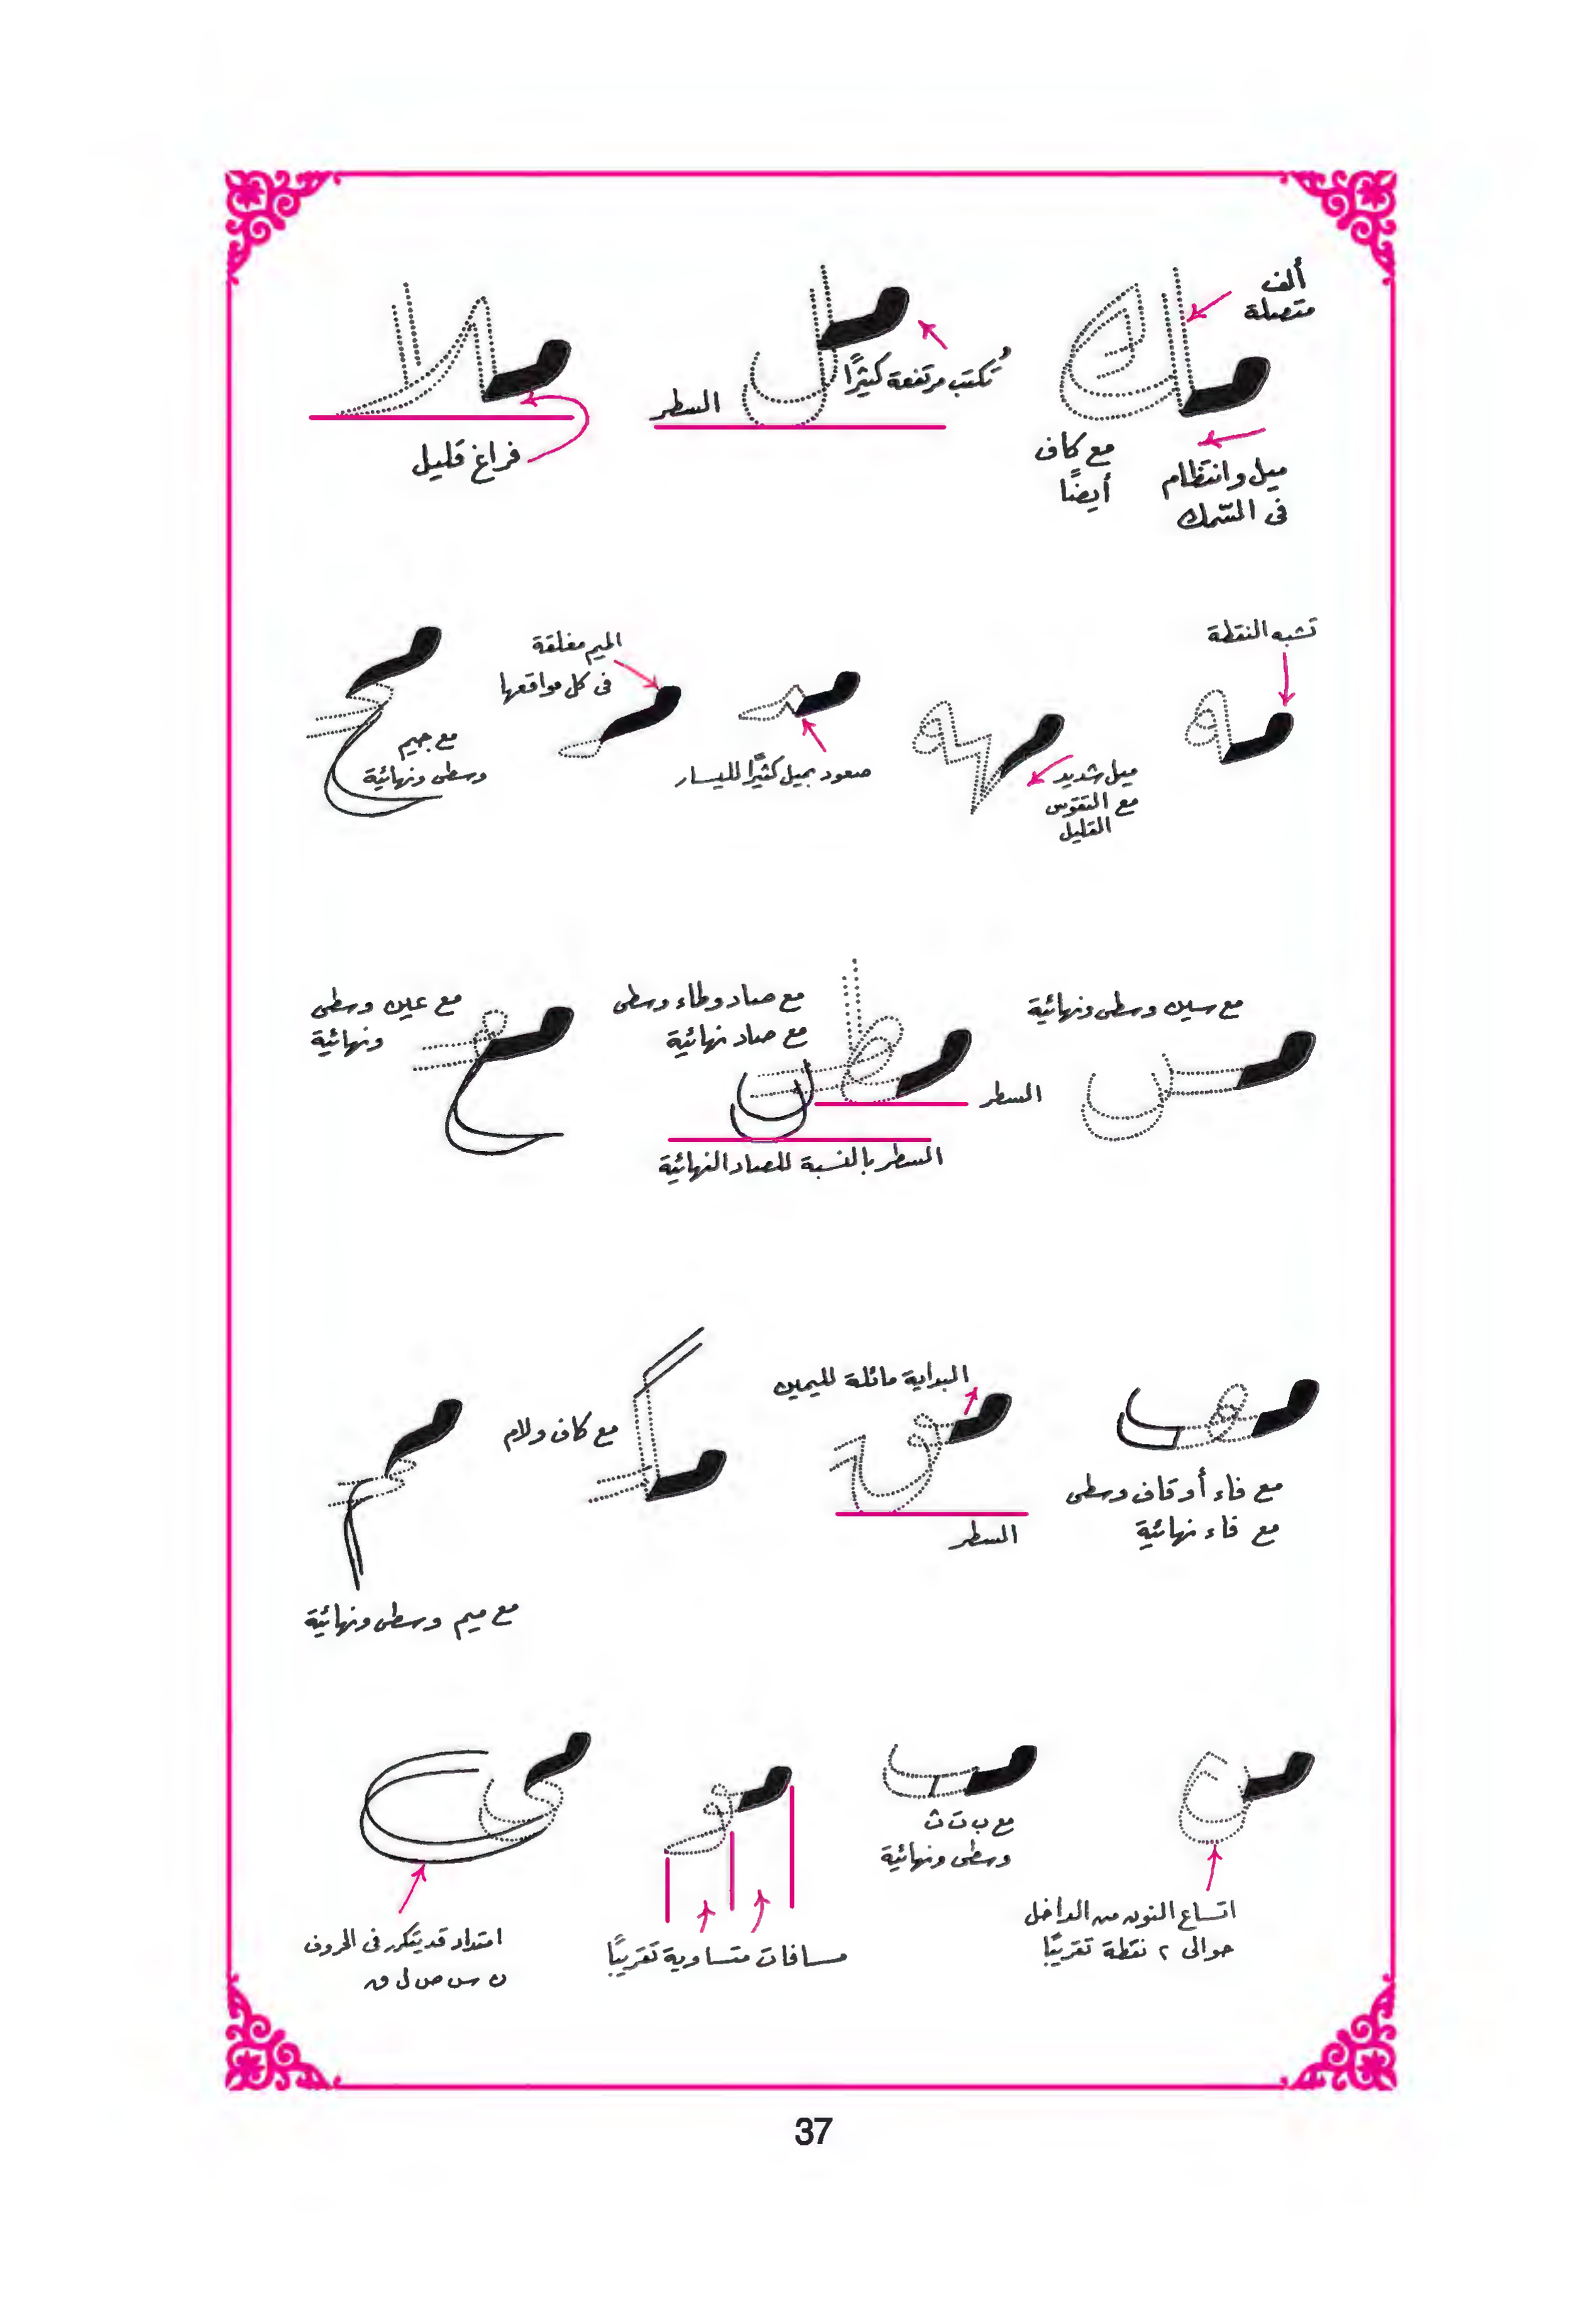 ألف
متصلة
مع كاف
أيضًا
ميل وانتظام
فى السُّمك
تُكتب مرتفعة كثيرًا
السطر
فراغ قليل
تشبه النقطة
ميل شديد
مع التقوس
القليل
صعود بميل كثيرًا لليسار
الميم مغلقة
فى كل مواقعها
مع جيم
وسطى ونهائية
مع سين وسطى ونهائية
مع صاد وطاء وسطى
مع صاد نهائية
السطر
السطر بالنسبة للصاد النهائية
مع عين وسطى
ونهائية
مع فاء أو قاف وسطى
مع فاء نهائية
البداية مائلة لليمين
السطر
مع كاف ولام
مع ميم وسطى ونهائية
اتساع النون من الداخل
حوالى ٢ نقطة تقريبًا
مع ب ت ث
وسطى ونهائية
مسافات متساوية تقريبًا
امتداد قد يتكرر فى الحروف
ن س ص ل ق
37